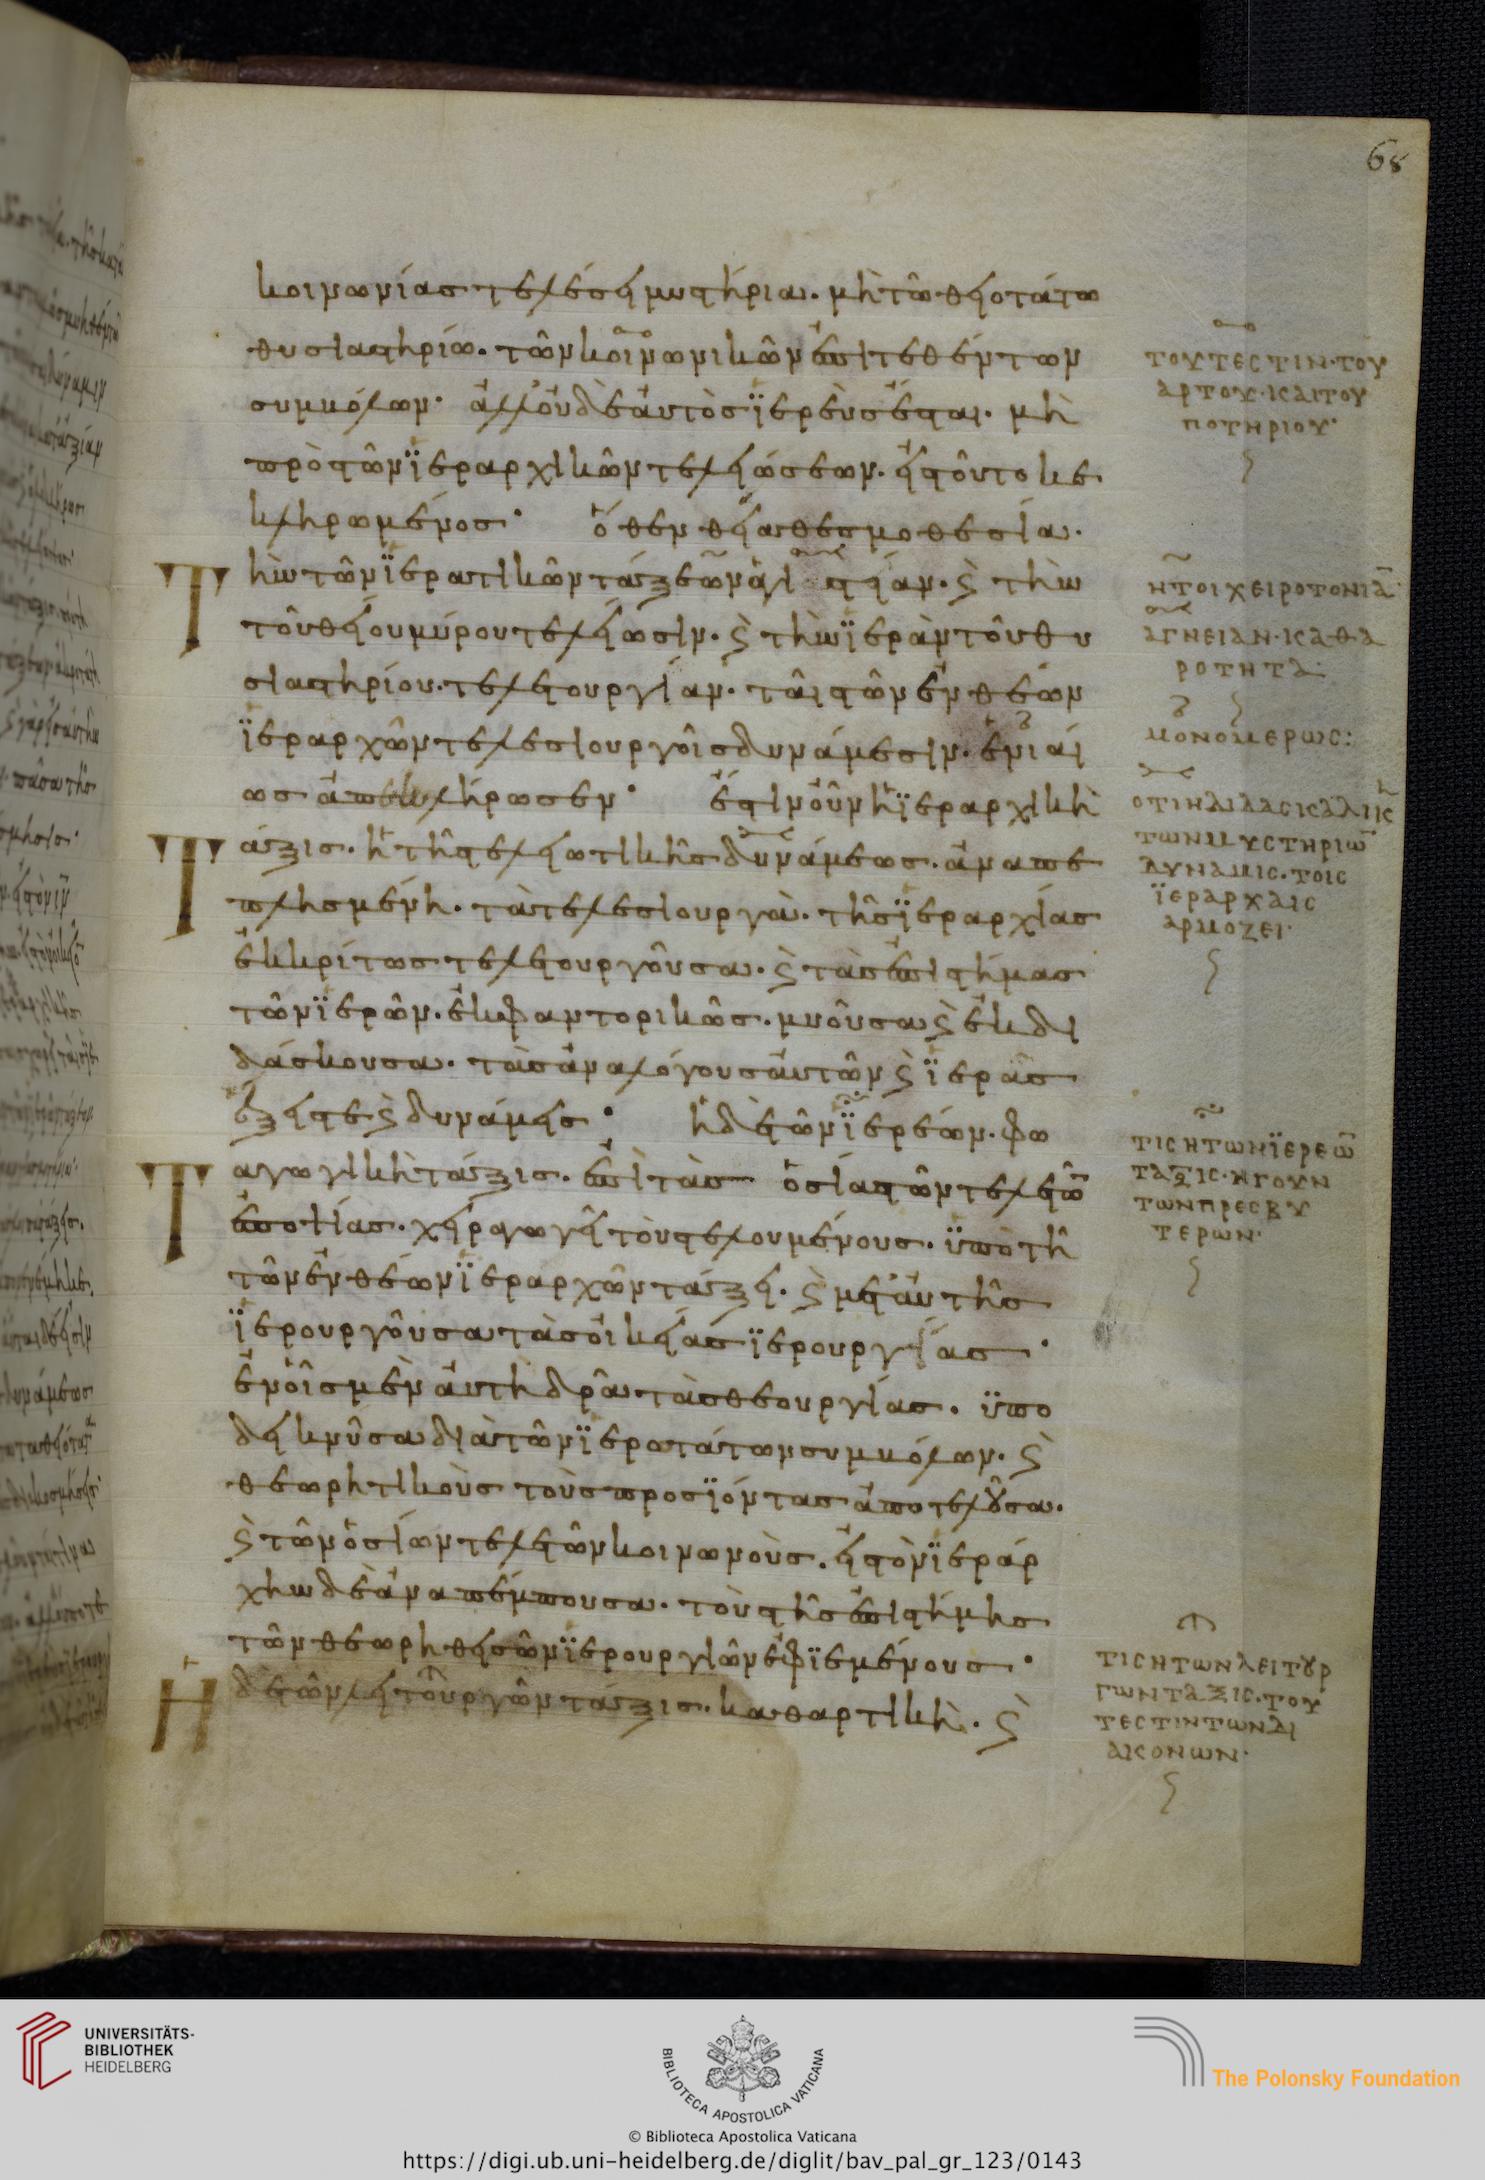 68
κοινωνίας τελέσει μυστήρια. μὴ τῶ θειοτάτω
θυσιαστηρίω. τῶν κοινωνικῶν ἐπιτεθέντων
συμβόλων· ἀλλ' οὐδὲ αὐτὸς ϊερεὺς ἔσται. μὴ
πρὸς τῶν ϊεραρχικῶν τελειώσεων. εἰς τοῦτο κε
κληρωμένος· ὅθεν θεία θεσμοθεσία.
Τὴν τῶν ϊερατικῶν τάξεων ἁγιστείαν. ϗ τὴν
τοῦ θείου μύρου τελείωσιν. ϗ τὴν ϊερὰν τοῦ θυ
σιαστηρίου. τελετουργίαν. ταῖς τῶν ἐνθέων
ϊεραρχῶν τελεσιουργοῖς δυνάμεσιν. ἑνιαί
ως ἀπεκλήρωσεν· ἔστιν οὖν ἡ ϊεραρχικὴ
Τάξις. ἡ τῆς τελειωτικῆς δυνάμεως. ἀναπε
πλησμένη. τὰ τελεσιουργὰ. τῆς ϊεραρχίας
ἐκκρίτως τελετουργοῦσα. ϗ τὰς ἐπιστήμας
τῶν ϊερῶν. ἐκφαντορικῶς. μυοῦσα ϗ ἐκδι
δάσκουσα. τὰς ἀναλόγους αὐτῶν ϗ ϊερὰς
ἕξεις τε ϗ δυνάμεις· ἡ δὲ τῶν ϊερέων. φω
Ταγωγικὴ τάξις. ἐπὶ τὰς ὁσίας τῶν τελετῶ
ἐποψίας. χειραγωγεῖ τοὺς τελουμένους. ϋπὸ τῆ
τῶν ἐνθέων ϊεραρχῶν τάξει. ϗ μετ' αὐτῆς
ϊερουργοῦσα τὰς οἰκείας ϊερουργίας·
ἐν οἷς μὲν αὐτὴ δρᾶ τὰς θεουργίας. ϋπο
δεικνῦσα διὰ τῶν ϊερωτάτων συμβόλων. ϗ
θεωρητικοὺς τοὺς προσϊόντας ἀποτελοῦσα.
ϗ τῶν ὁσίων τελετῶν κοινωνοὺς. εἰς τὸν ϊεράρ
χην δὲ ἀναπέμπουσα. τοὺς τῆς ἐπιστήμης
τῶν θεωρηθεισῶν ϊερουργιῶν ἐφϊεμένους·
Ἡ δὲ τῶν λειτουργῶν τάξις. καθαρτικὴ. ϗ
ΤΟΥΤΕCΤΙΝ· ΤΟΥ
ΑΡΤΟΥ· ΚΑΙ ΤΟΥ
ΠΟΤΗΡΙΟΥ·
ΗΤΟΙ ΧΕΙΡΟΤΟΝΙΑ
ΑΓΝΕΙΑΝ· ΚΑΘΑ
ΡΟΤΗΤΑ·
ΜΟΝΟΜΕΡΩC:
ΟΤΙ Η ΔΙΔΑCΚΑΛΙΚΗ
ΤΩΝ ΜΥCΤΗΡΙΩ
ΔΥΝΑΜΙC· ΤΟΙC
ΪΕΡΑΡΧΑΙC
ΑΡΜΟΖΕΙ·
ΤΙC Η ΤΩΝ ΪΕΡΕΩ
ΤΑΞΙC· ΗΓΟΥΝ
ΤΩΝ ΠΡΕCΒΥ
ΤΕΡΩΝ·
ΤΙC Η ΤΩΝ ΛΕΙΤΟΥΡ
ΓΩΝ ΤΑΞΙC· ΤΟΥ
ΤΕCΤΙΝ ΤΩΝ ΔΙ
ΑΚΟΝΩΝ·
UNIVERSITÄTS-
BIBLIOTHEK
HEIDELBERG
BIBLIOTECA APOSTOLICA VATICANA
© Biblioteca Apostolica Vaticana
The Polonsky Foundation
https://digi.ub.uni-heidelberg.de/diglit/bav_pal_gr_123/0143